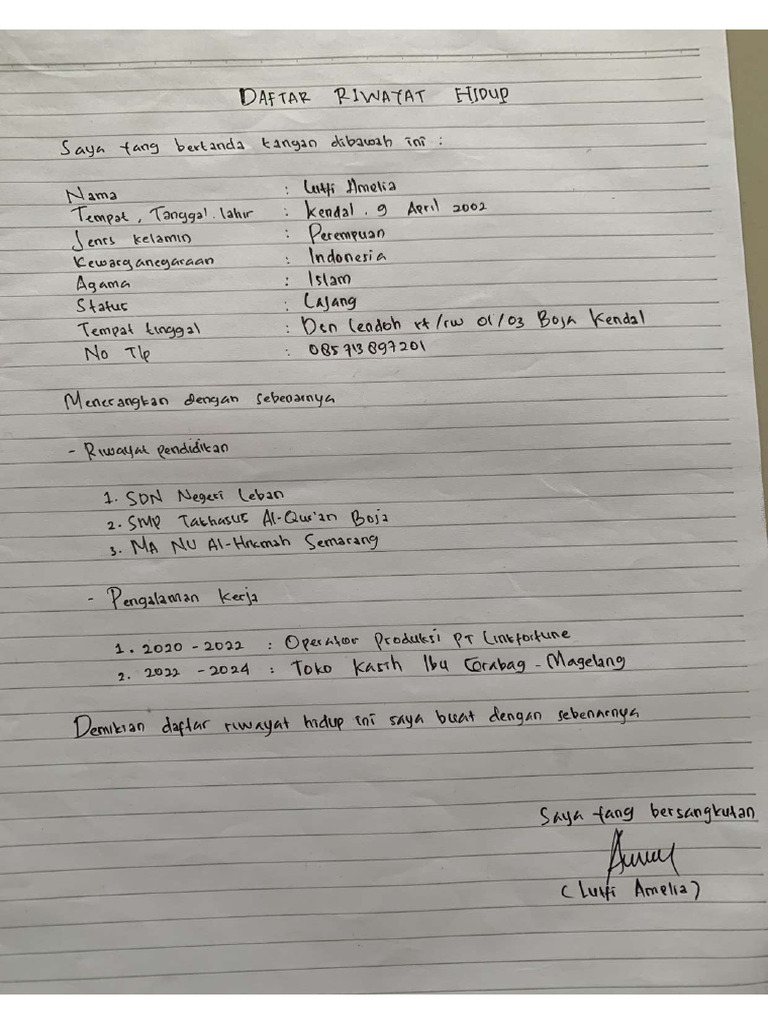 DAFTAR RIWAYAT HIDUP
Saya yang bertanda tangan dibawah ini :
Nama : Lutfi Amelia
Tempat, Tanggal lahir : Kendal, 9 April 2002
Jenis kelamin : Perempuan
Kewarganegaraan : Indonesia
Agama : Islam
Status : Lajang
Tempat tinggal : Dsn Lendoh rt/rw 01/03 Boja Kendal
No Tlp : 085713897201
Menerangkan dengan sebenarnya
- Riwayat pendidikan
1. SDN Negeri Leban
2. SMP Takhasus Al-Qur'an Boja
3. MA NU Al-Hikmah Semarang
- Pengalaman kerja
1. 2020 - 2022 : Operator Produksi PT Linkfortune
2. 2022 - 2024 : Toko Kasih Ibu Corabag - Magelang
Demikian daftar riwayat hidup ini saya buat dengan sebenarnya
Saya yang bersangkutan
(Lutfi Amelia)